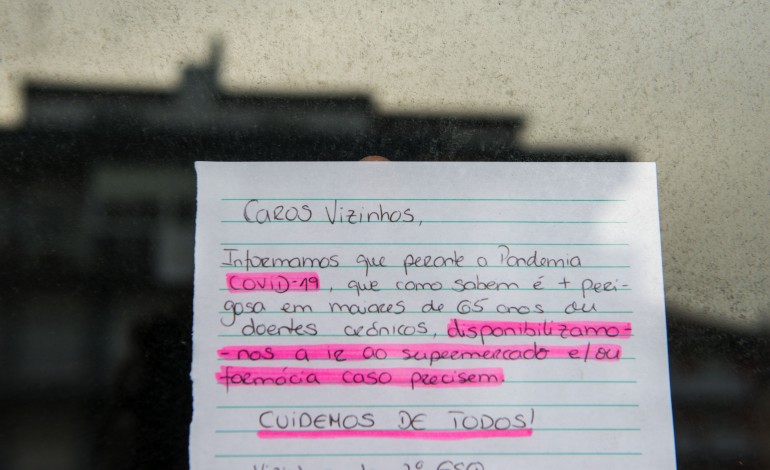 Caros Vizinhos,
Informamos que perante a Pandemia
COVID-19, que como sabem é + peri-
gosa em maiores de 65 anos ou
doentes crónicos, disponibilizamo-
-nos a ir ao supermercado e/ou
farmácia caso precisem.
CUIDEMOS DE TODOS!